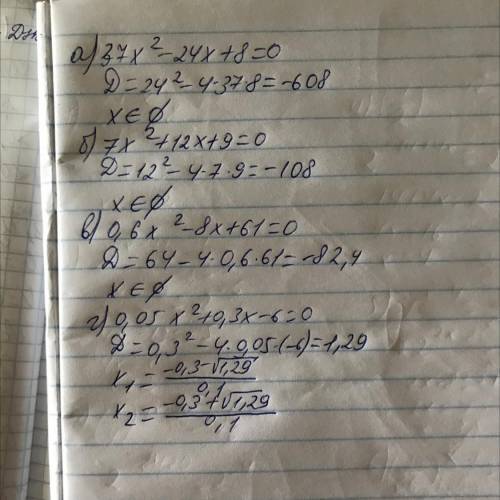 а) 37x² - 24x + 8 = 0
D = 24² - 4·37·8 = -608
x ∈ ∅
б) 7x² + 12x + 9 = 0
D = 12² - 4·7·9 = -108
x ∈ ∅
в) 0,6x² - 8x + 61 = 0
D = 64 - 4·0,6·61 = -82,4
x ∈ ∅
г) 0,05x² + 0,3x - 6 = 0
D = 0,3² - 4·0,05·(-6) = 1,29
x₁ = (-0,3 - √1,29) / 0,1
x₂ = (-0,3 + √1,29) / 0,1